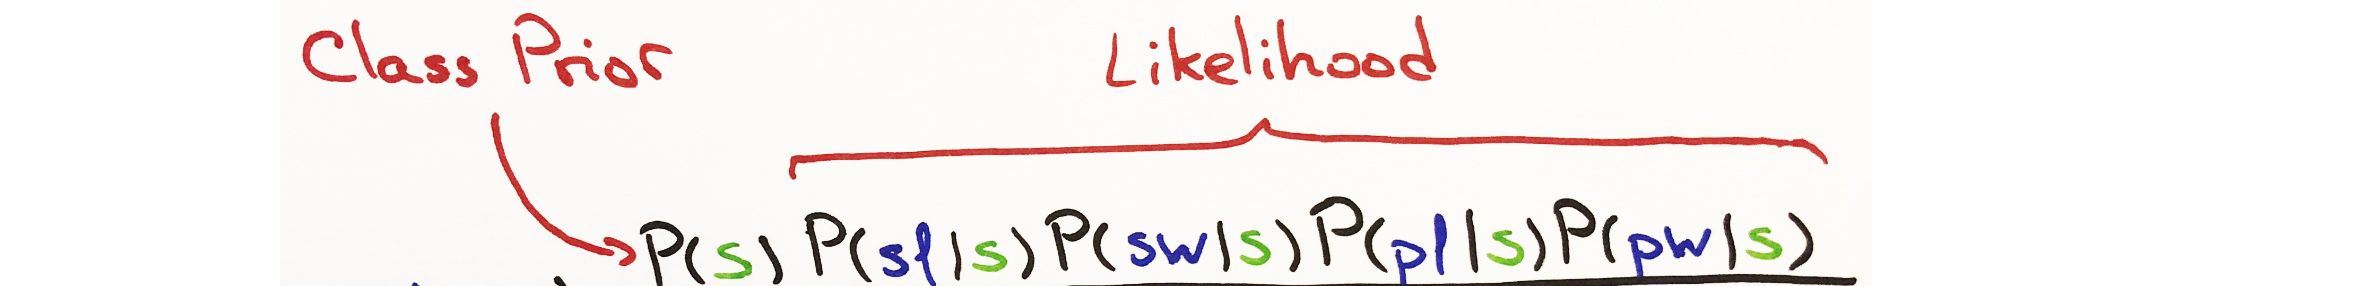 Class Prior Likelihood
P(s) P(sl|s) P(sw|s) P(pl|s) P(pw|s)